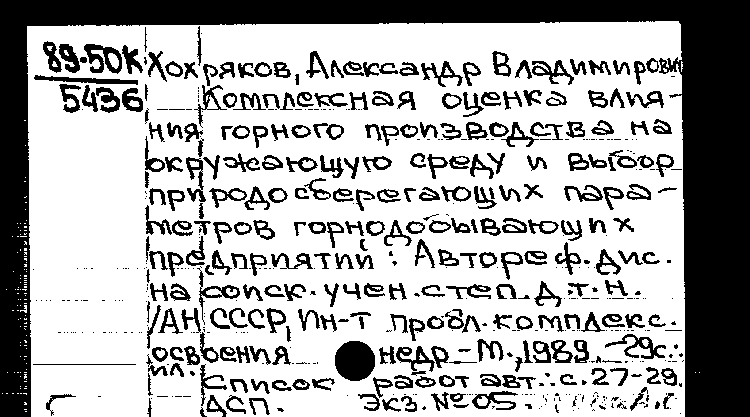 89-50К
5436
Хохряков, Александр Владимирович
Комплексная оценка влия-
ния горного производства на
окружающую среду и выбор
природосберегающих пара-
метров горнодобывающих
предприятий : Автореф. дис.
на соиск. учен. степ. д.т.н.
/АН СССР, Ин-т пробл. комплекс.
освоения недр. - М., 1989. - 29с.:
ил.
Список работ авт.: с. 27-29.
ДСП. Экз. № 05.